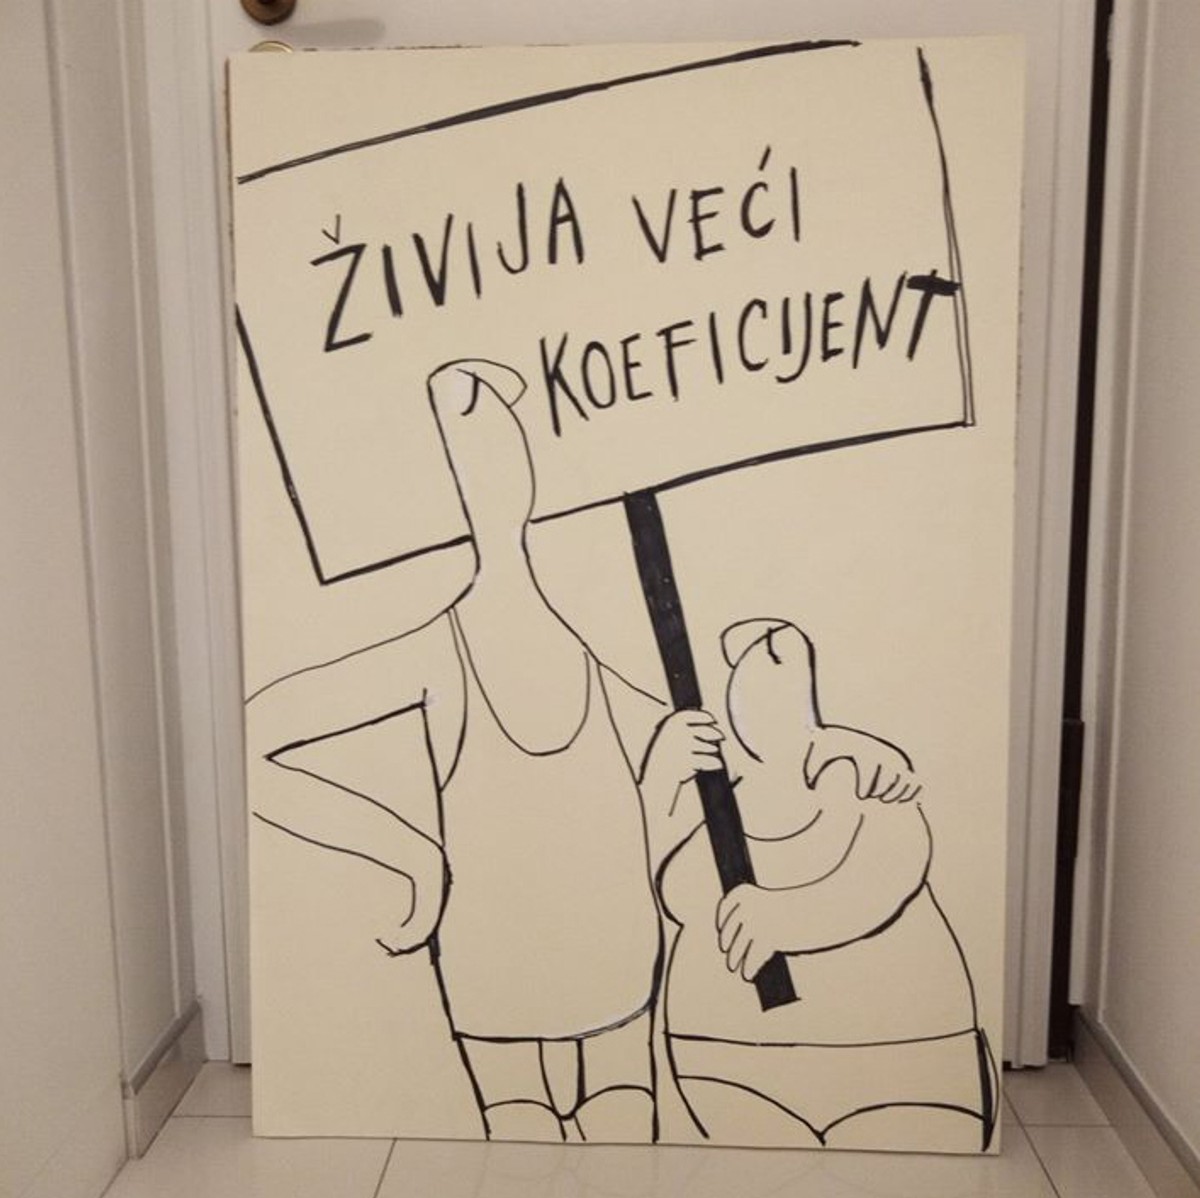 ŽIVIJA VEĆI
KOEFICIJENT